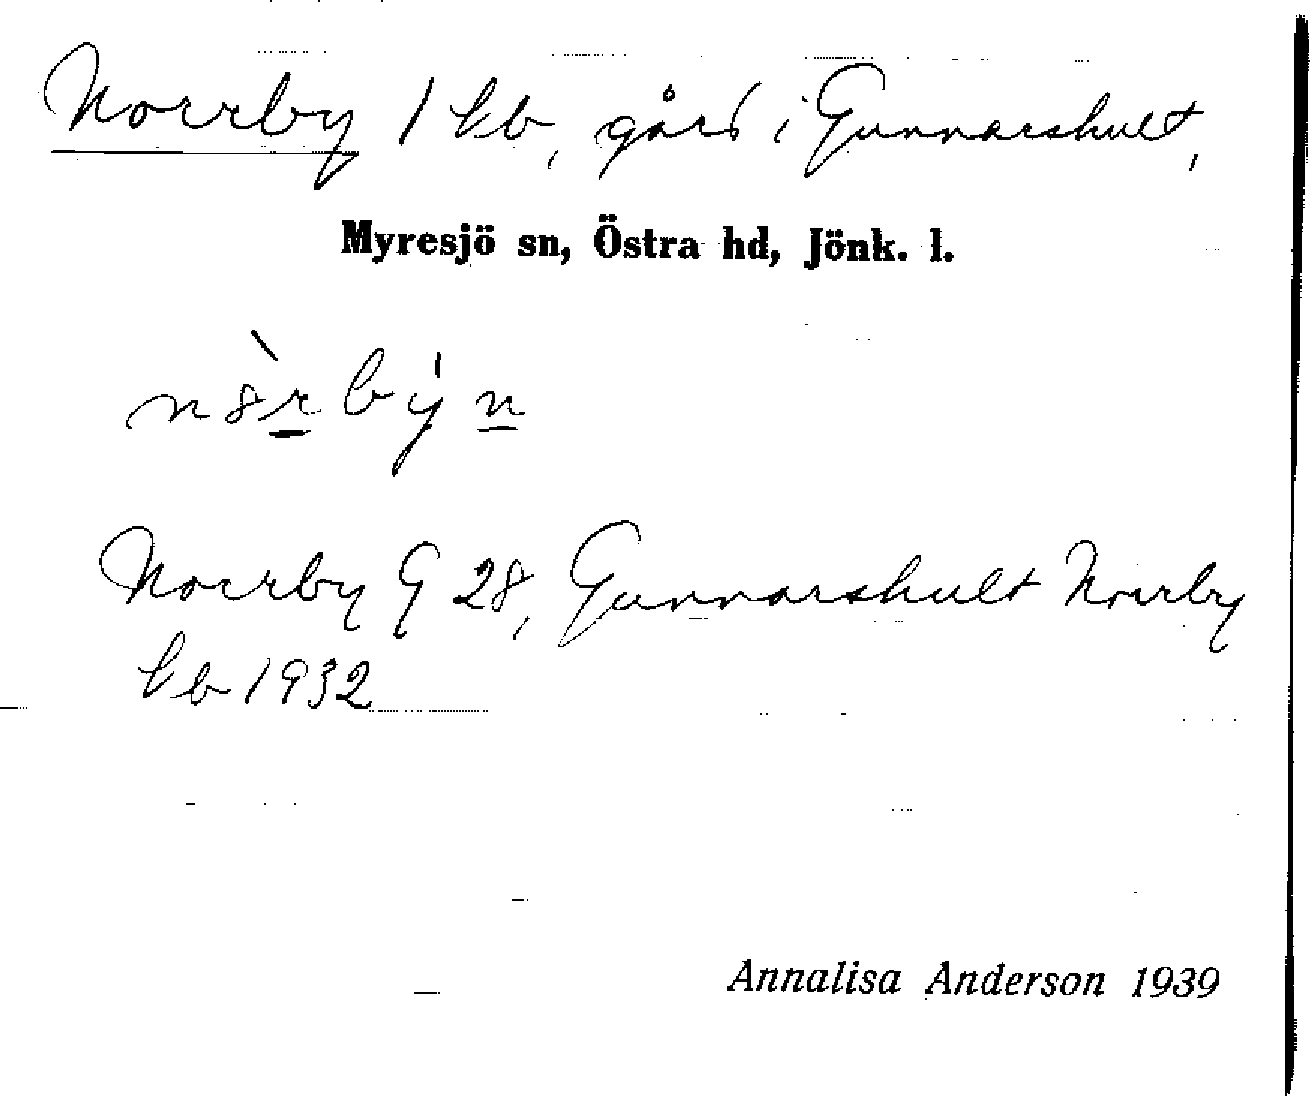 Norrby 1 kb, gård i Gunnarshult,
Myresjö sn, Östra hd, Jönk. l.
n8̀rbýn
Norrby G 28, Gunnarshult Norrby
kb 1932
Annalisa Anderson 1939